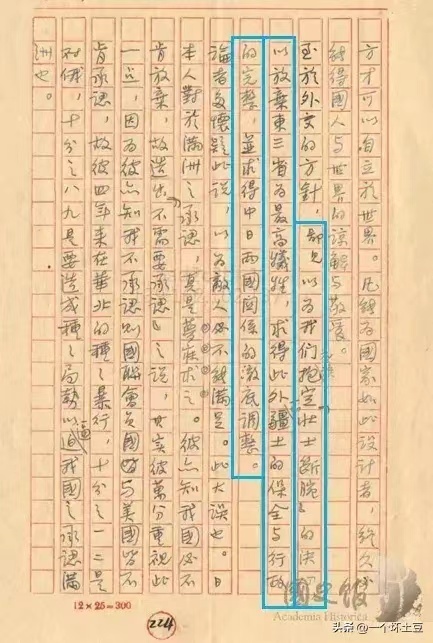 方才可以自立於世界。凡能為國家如此設計者，終久必
能得國人与世界的諒解与敬愛。
至於外交的方針，鄙見以為我们抱定壯士斷腕的決
以放棄東三省為最高犧牲，求得此外疆土的保全与行政
的完整，並求得中日两國関係的澈底調整。
論者多懷疑此說，以為敵人必不能滿足。此大誤也。日
本人對於滿洲之承認，真是夢寐求之。彼亦知我國必不
肯放棄，故造出「不需要承認」之說，其实彼萬分重視此
一点，因為彼亦知我不承認則國聯會員國与美國皆不
肯承認，故彼四年来在華北的種々暴行，十分之一二是
对俄，十分之八九是要造成種々局勢以逼我國之承認滿
洲也。
12×25=300
224
國史館
Academia Historica
头条 @一个坏土豆